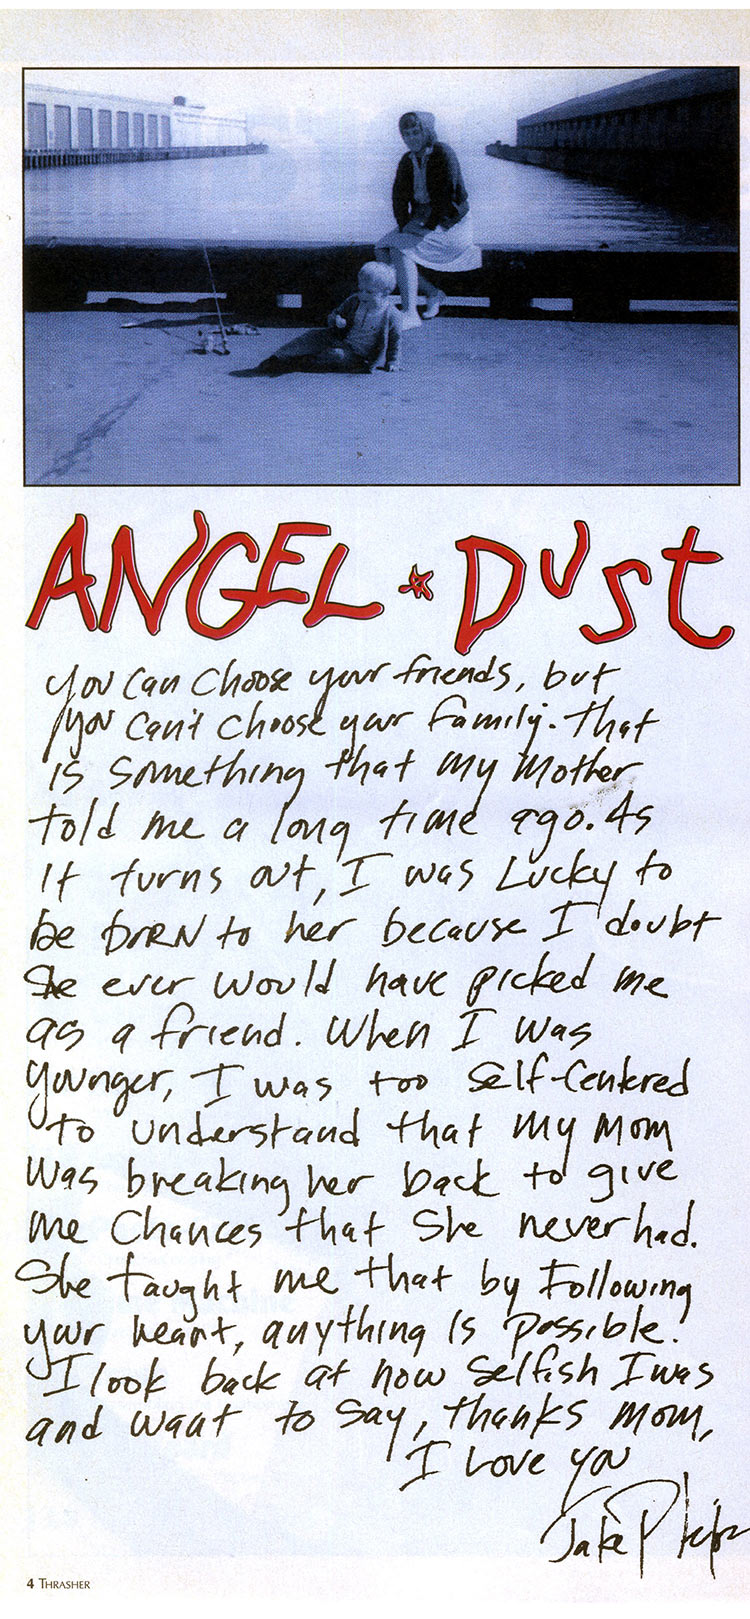 ANGEL * DUST
you can choose your friends, but
you can't choose your family. that
is something that my mother
told me a long time ago. As
it turns out, I was Lucky to
be borN to her because I doubt
she ever would have picked me
as a friend. When I was
younger, I was too self-Centered
to understand that my mom
was breaking her back to give
me Chances that She never had.
She taught me that by Following
your heart, anything is possible.
I look back at how selfish I was
and want to say, thanks mom,
I love you
Jake Phelps
4 THRASHER